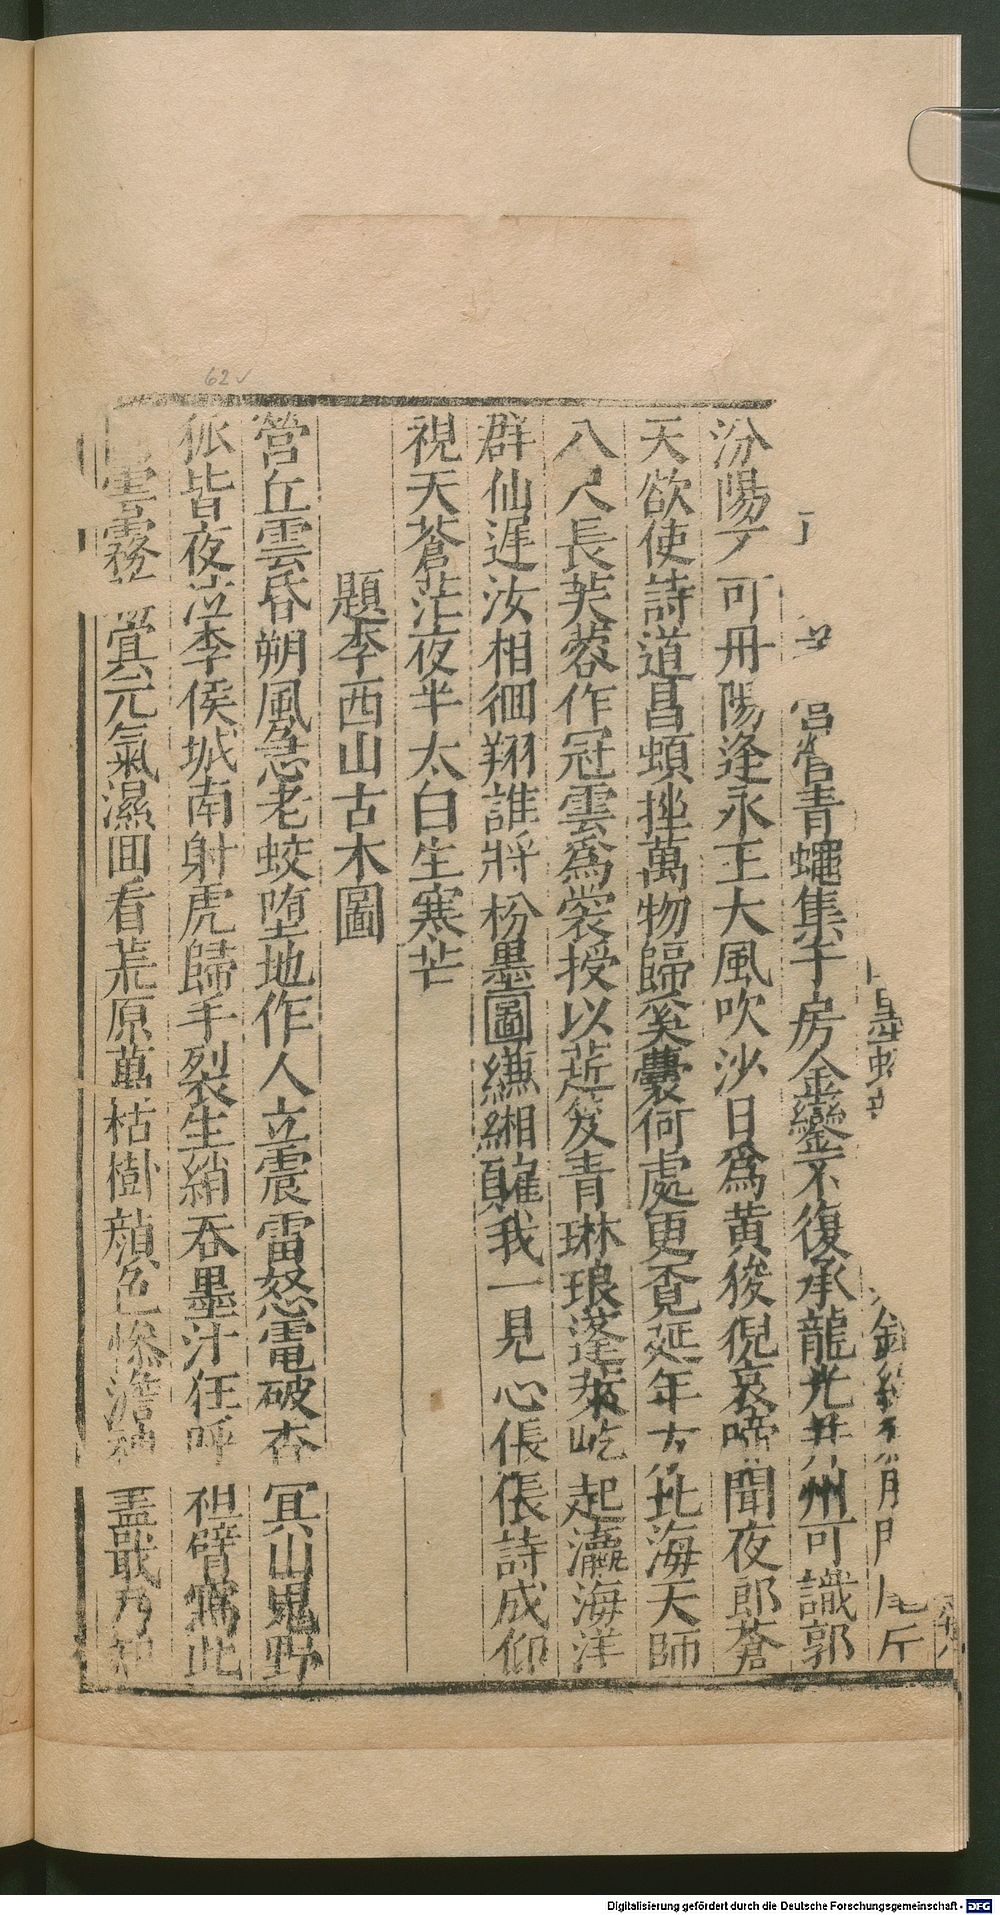 尾斤
宮 青蠅集于房金鑾不復承龍光并州可識郭
汾陽 可丹陽逢永王大風吹沙日爲黄狻猊哀啼聞夜郎蒼
天欲使詩道昌蝢挫萬物歸奚囊何處更覔延年方北海天師
八尺長芙蓉作冠雲爲裳授以蕋笈青琳琅蓬萊屹起瀛海洋
群仙遟汝相徊翔誰將粉墨圖縑緗 我一見心倀倀詩成仰
視天蒼茫夜半太白生寒芒
題李西山古木圖
營丘雲昏朔風急老蛟墮地作人立震雷怒電破杳冥山鬼野
狐皆夜泣李侯城南射虎歸手裂生綃吞墨汁狂呼袒臂寫此
雲霧 覚元氣濕囬看荒原萬枯樹顔色慘澹神 戢乃知
62v
Digitalisierung gefördert durch die Deutsche Forschungsgemeinschaft - DFG